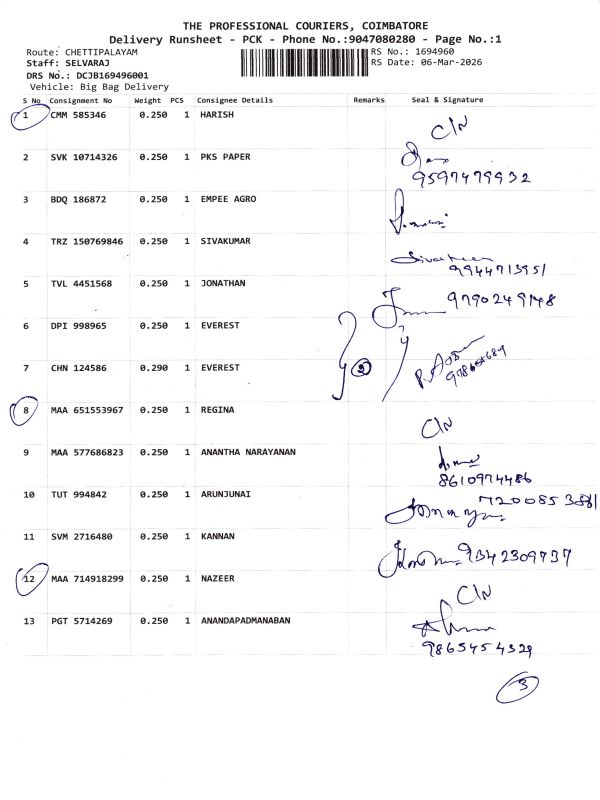 THE PROFESSIONAL COURIERS, COIMBATORE
Delivery Runsheet - PCK - Phone No.:9047080280 - Page No.:1
Route: CHETTIPALAYAM
RS No.: 1694960
Staff: SELVARAJ
RS Date: 06-Mar-2026
DRS No.: DCJB169496001
Vehicle: Big Bag Delivery
S No Consignment No Weight PCS Consignee Details Remarks Seal & Signature
1 CMM 585346 0.250 1 HARISH C/N
2 SVK 10714326 0.250 1 PKS PAPER
9597479932
3 BDQ 186872 0.250 1 EMPEE AGRO
4 TRZ 150769846 0.250 1 SIVAKUMAR
9944713951
5 TVL 4451568 0.250 1 JONATHAN 9790249148
6 DPI 998965 0.250 1 EVEREST
7 CHN 124586 0.290 1 EVEREST 2
8 MAA 651553967 0.250 1 REGINA C/N
9 MAA 577686823 0.250 1 ANANTHA NARAYANAN
8610974486
10 TUT 994842 0.250 1 ARUNJUNAI
11 SVM 2716480 0.250 1 KANNAN 9342309737
12 MAA 714918299 0.250 1 NAZEER C/N
13 PGT 5714269 0.250 1 ANANDAPADMANABAN
9865454329
3